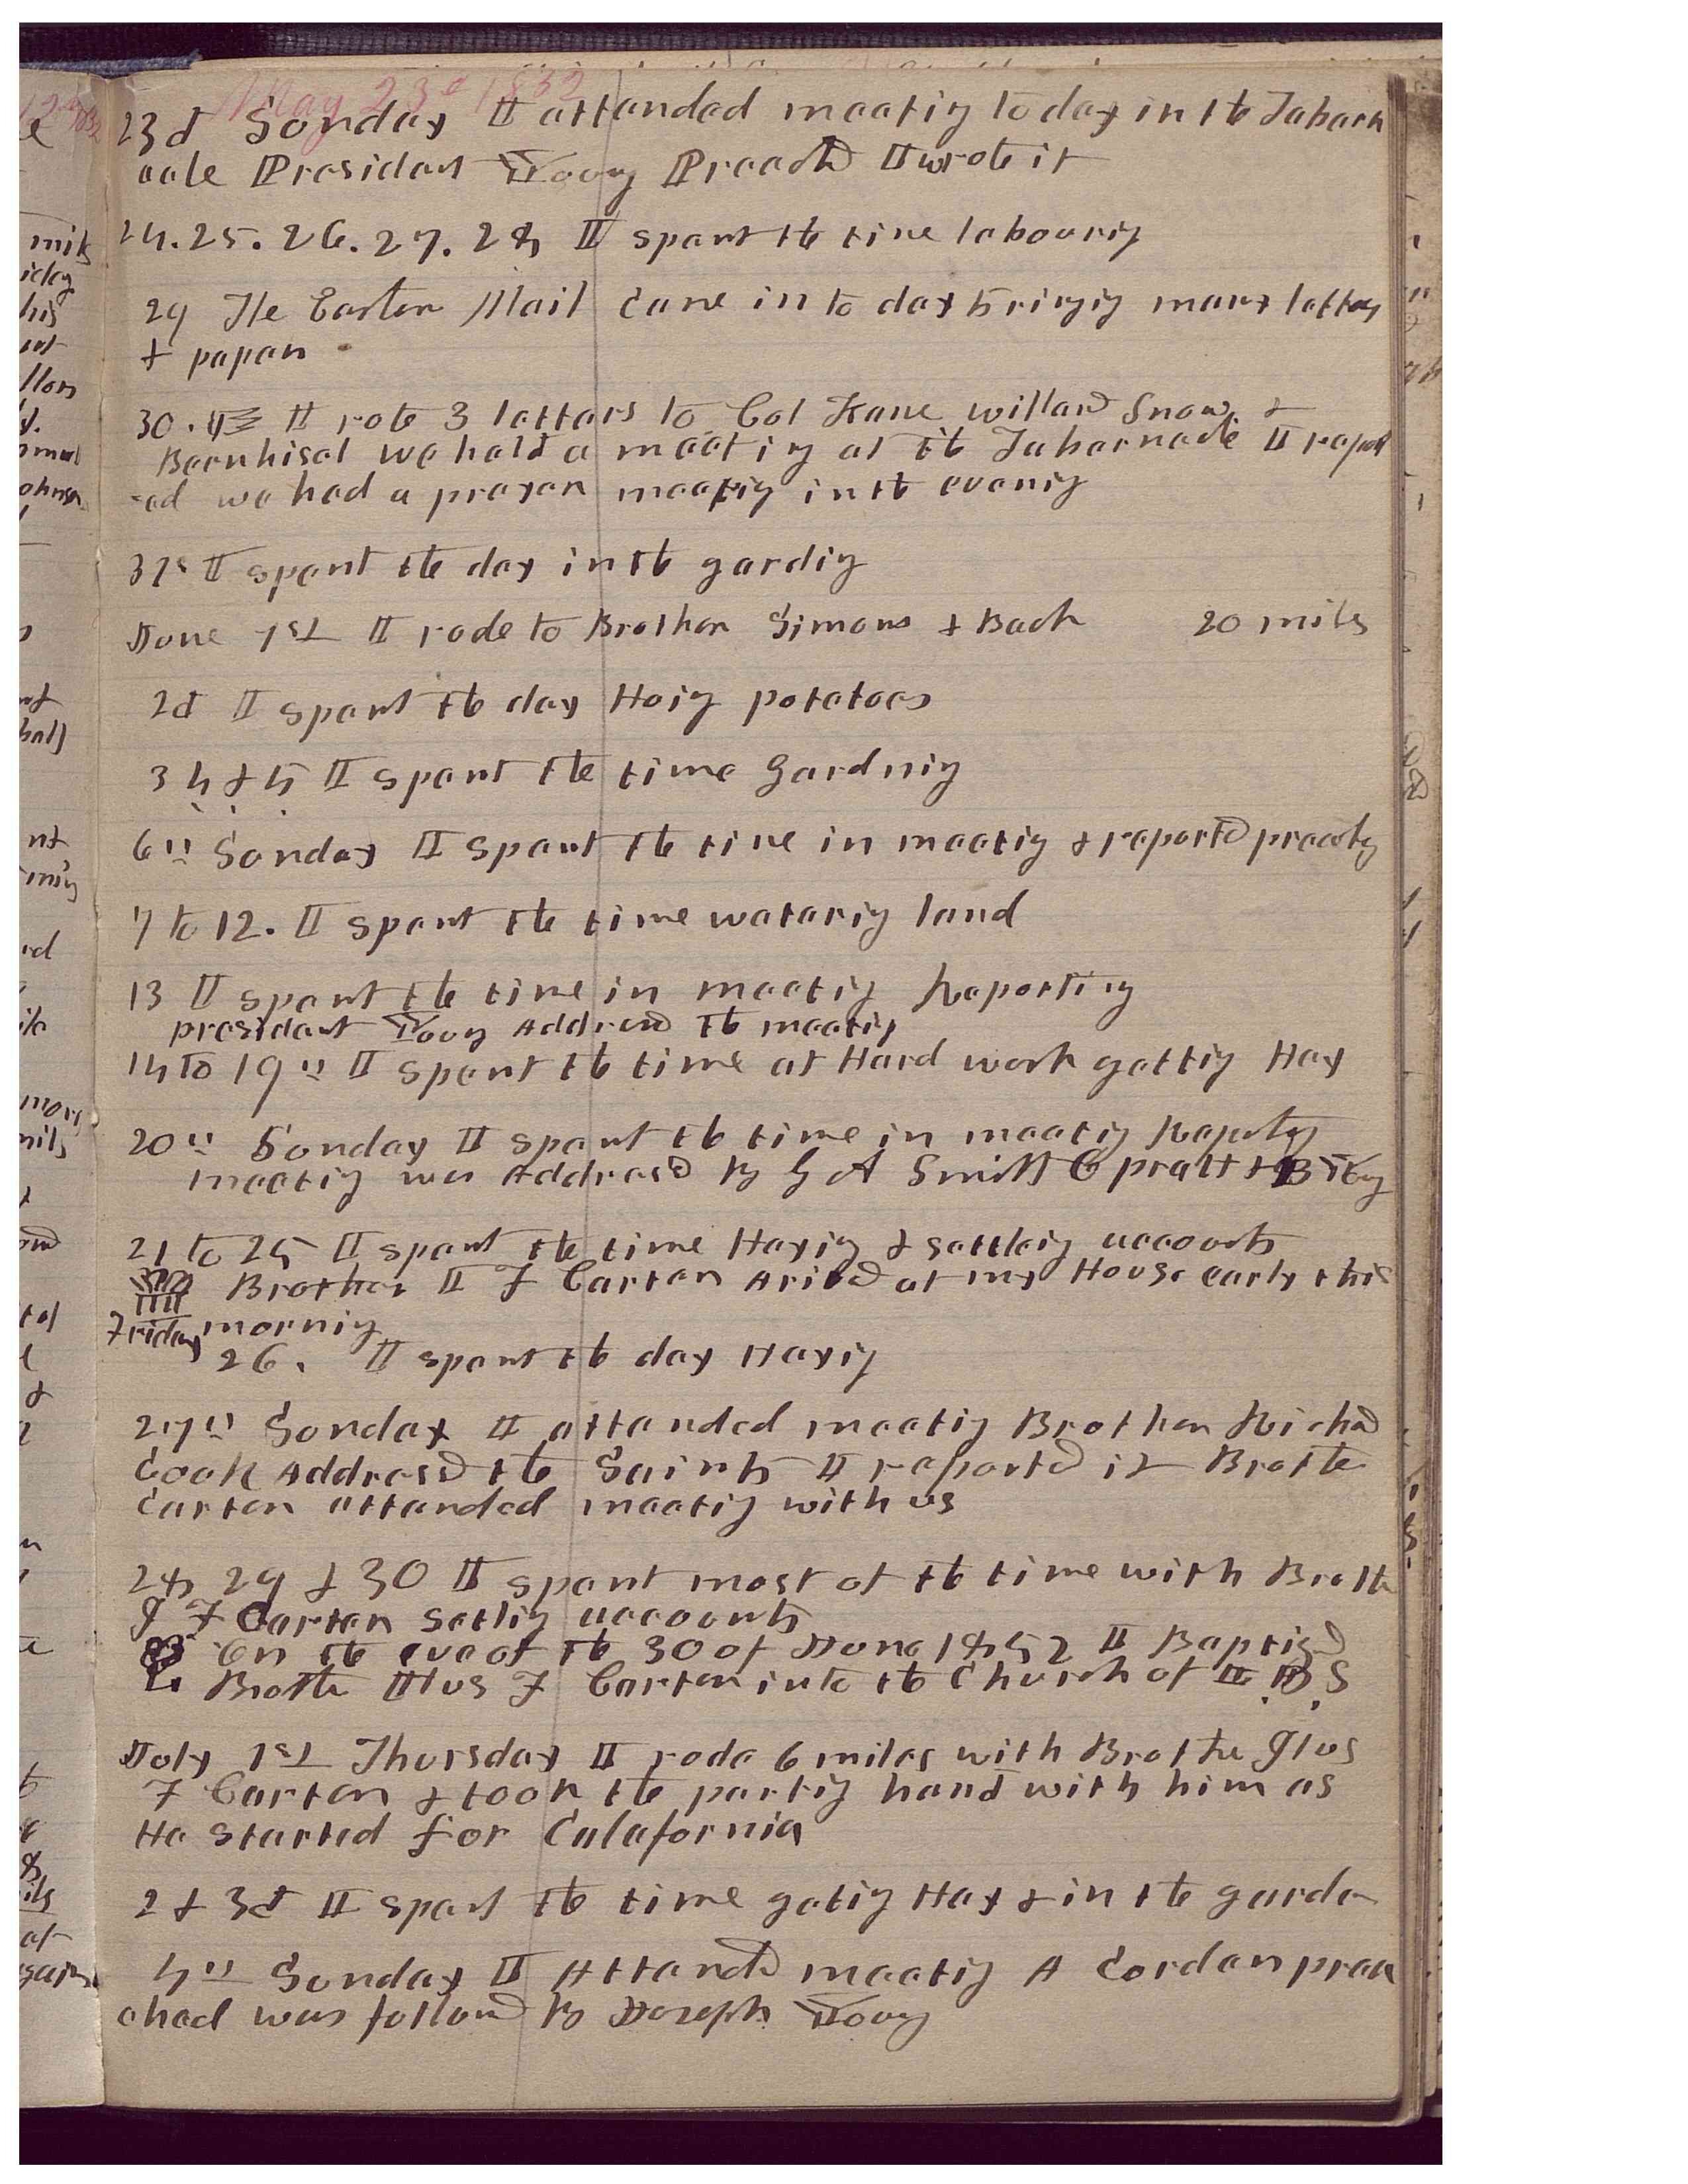 May 23d 1852
23d Sunday I attended meeting to day in the Tabern
acle President Young Preachd I wrote it
24. 25. 26. 27. 28 I spent the time labouring
29 The Eastern Mail came in to day bringing many letters
& papers
30. I rote 3 letters to Col Kane Willard Snow &
Bernhisel we held a meeting at the Tabernacle I report
-ed we had a prayer meeting in the evening
31s I spent the day in the gardig
June 1st I rode to Brother Simons & Back 20 miles
2d I spent the day Hoing potatoes
3 4 & 5 I spent the time Gardning
6" Sunday I spent the time in meeting & reportd preachg
7 to 12. I spent the time watering land
13 I spent the time in meeting Reporting
president Young Addresd the meeting
14 to 19" I spent the time at Hard work getting Hay
20" Sunday I spent the time in meeting Reportg
meeting was Addressd By G A Smith O pratt & B Yg
21 to 25 I spent the time Haying & settleing accounts
Brother I F Carter Arivd at my House early this
Friday morning
26. I spent the day Haying
27" Sunday I attended meeting Brother Richd
Cook Addressd the Saints I reportd it Brother
Carter attended meeting with us
28 29 & 30 I spent most of the time with Brothr
I F Carter Setling accounts
On the eve of the 30 of June 1852 I Baptizd
Brother Ilus F Carter into the Church of L D. S
July 1st Thursday I rode 6 miles with Brother Ilus
F Carter & took the parting hand with him as
He started for Calafornia
2 & 3d I spent the time geting Hay & in the garden
4" Sunday I Attendd meeting A Cordon prea
ched was followd By Joseph Young